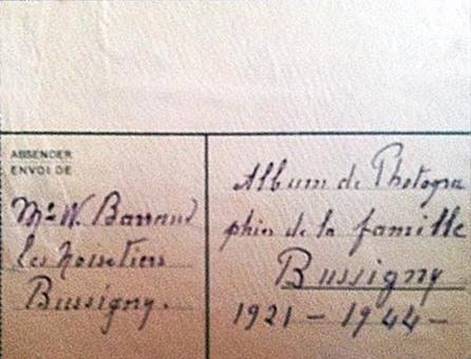 ABSENDER
ENVOI DE
Mr W. Barraud
les Noisetiers
Bussigny.
Album de Photogra
phies de la famille
Bussigny
1921 - 1944 -